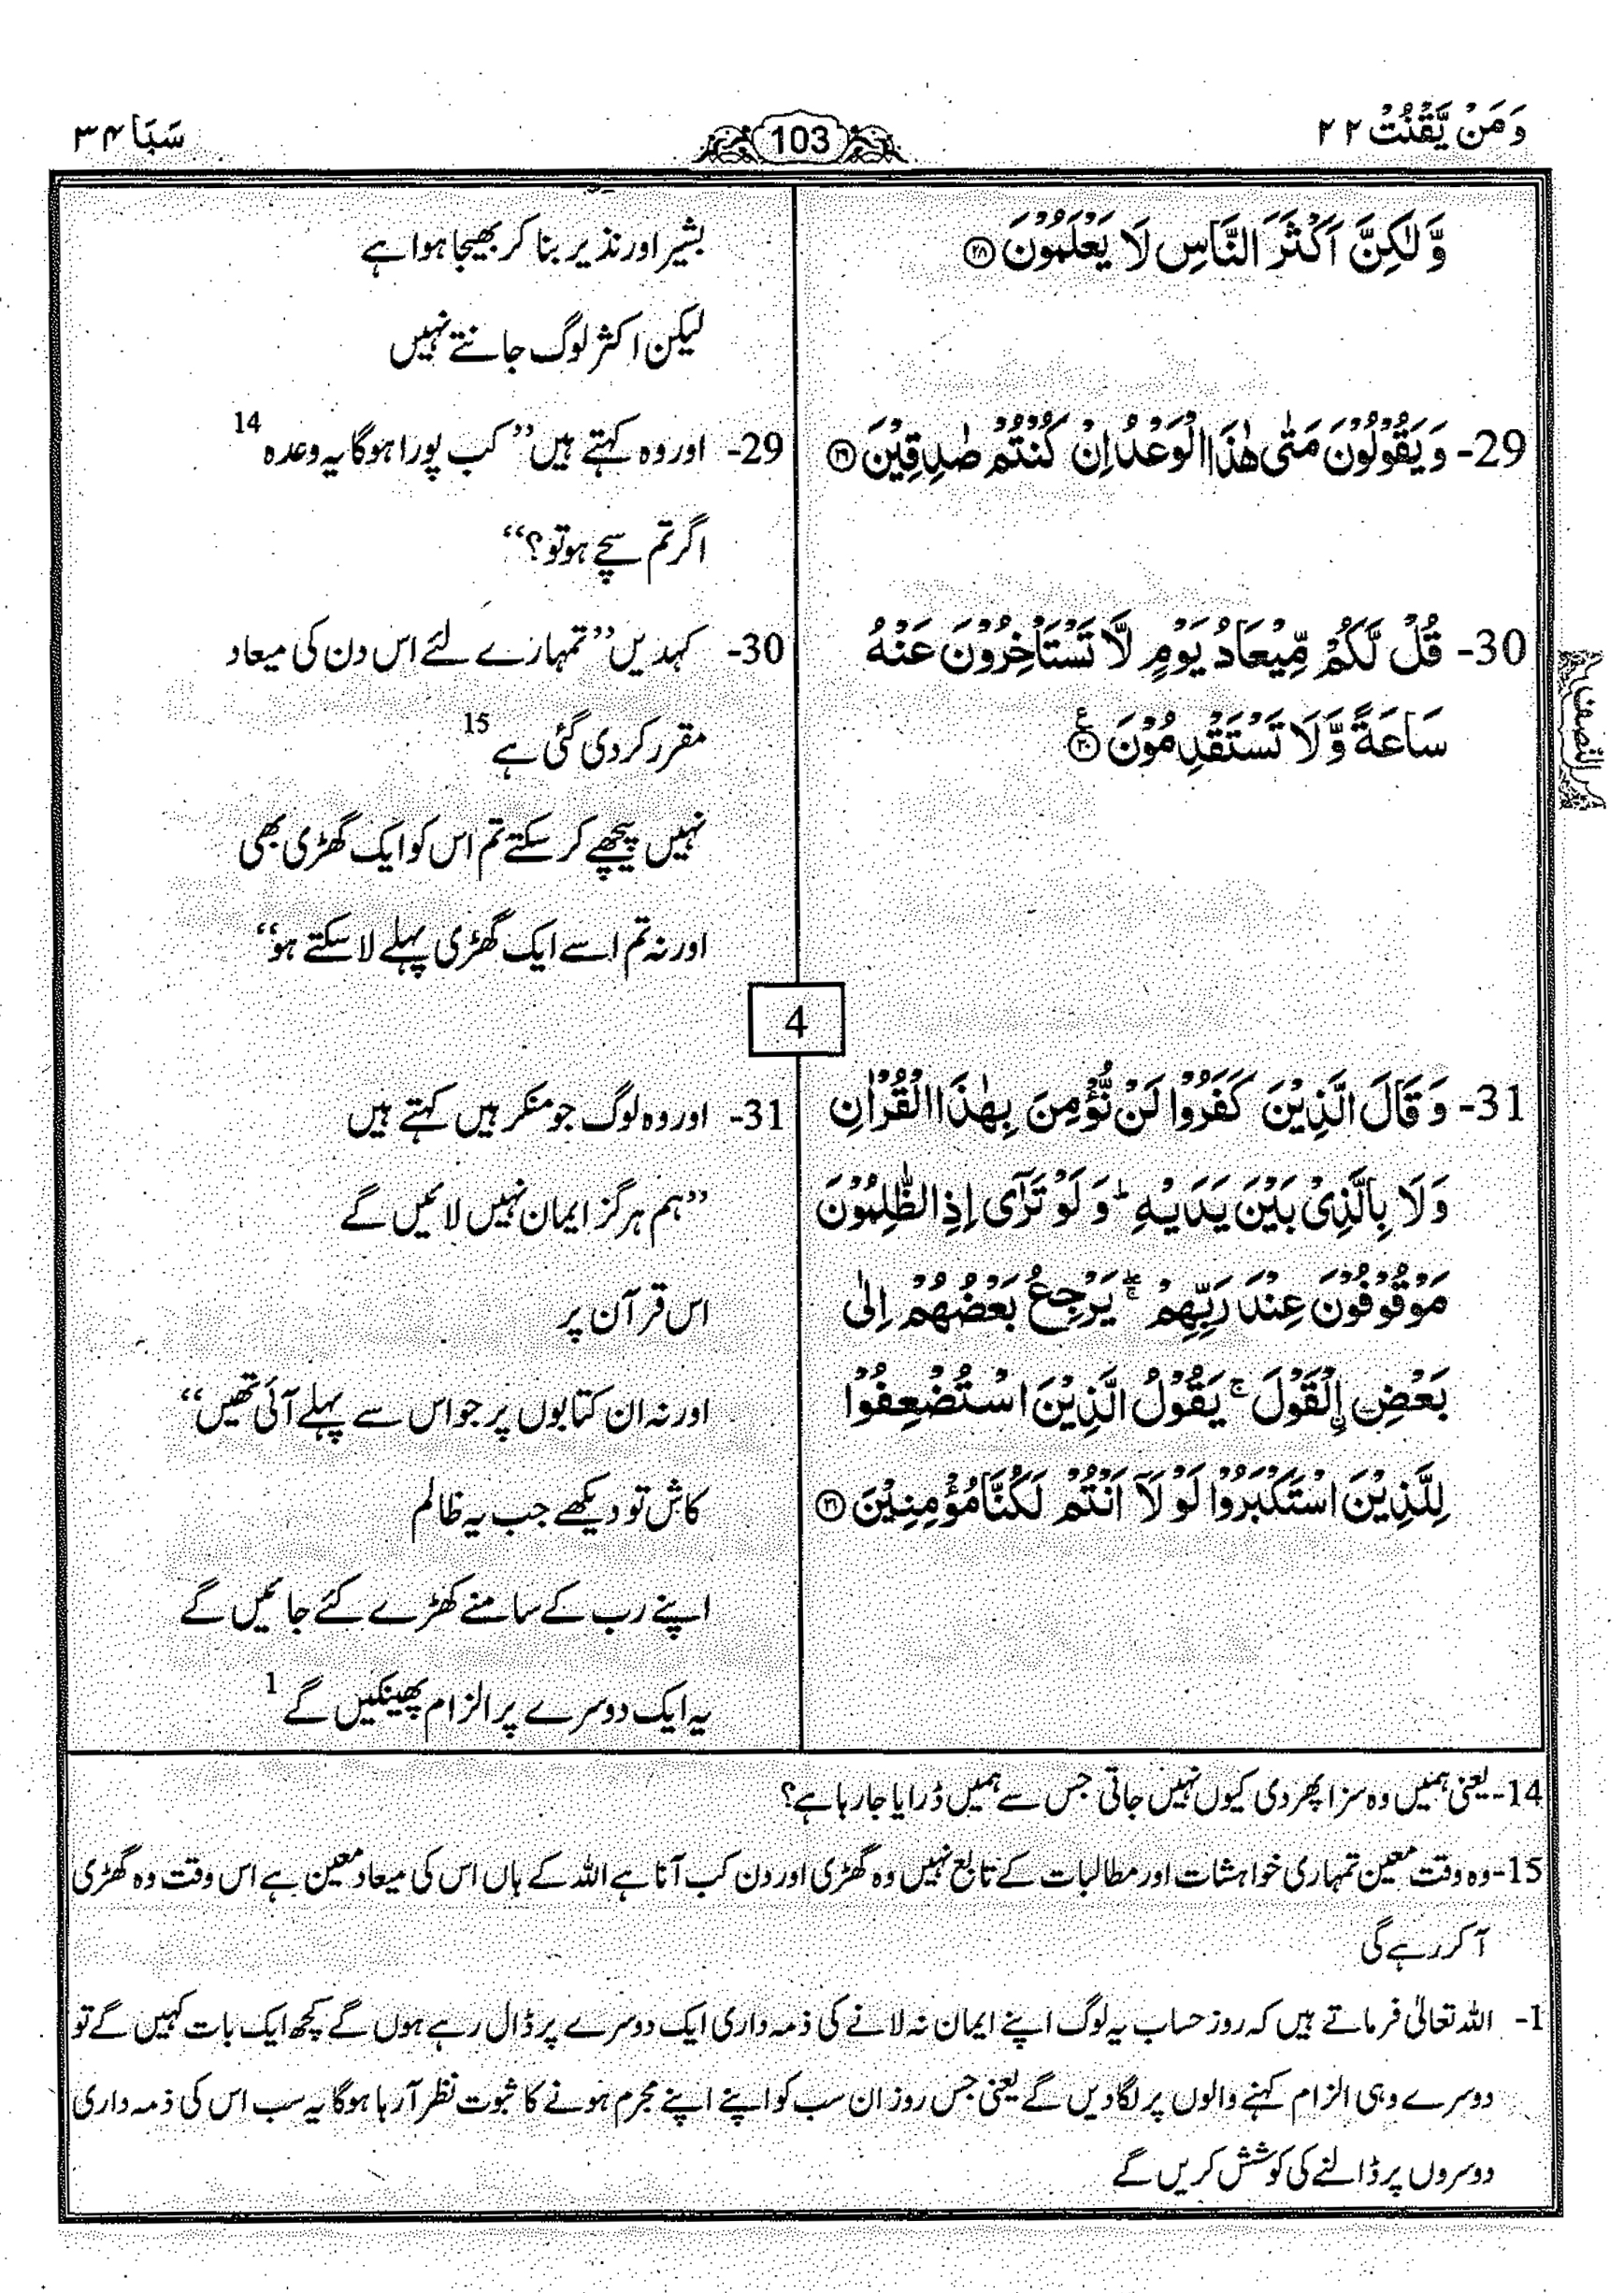 وَمَنْ يَّقْنُتْ ۲۲
103
سَبَا ۳۴
وَّلٰكِنَّ اَكْثَرَ النَّاسِ لَا يَعْلَمُوْنَ ﴿۲۸﴾
29- وَيَقُوْلُوْنَ مَتٰى هٰذَا الْوَعْدُ اِنْ كُنْتُمْ صٰدِقِيْنَ ﴿۲۹﴾
30- قُلْ لَّكُمْ مِّيْعَادُ يَوْمٍ لَّا تَسْتَاْخِرُوْنَ عَنْهُ
سَاعَةً وَّلَا تَسْتَقْدِمُوْنَ ﴿۳۰﴾ ع
النصف
بشیر اور نذیر بنا کر بھیجا ہوا ہے
لیکن اکثر لوگ جانتے نہیں
29- اور وہ کہتے ہیں ”کب پورا ہوگا یہ وعدہ 14
اگر تم سچے ہو تو؟“
30- کہدیں ”تمہارے لئے اس دن کی میعاد
مقرر کر دی گئی ہے 15
نہیں پیچھے کر سکتے تم اس کو ایک گھڑی بھی
اور نہ تم اسے ایک گھڑی پہلے لا سکتے ہو“
4
31- وَقَالَ الَّذِيْنَ كَفَرُوْا لَنْ نُّؤْمِنَ بِهٰذَا الْقُرْاٰنِ
وَلَا بِالَّذِيْ بَيْنَ يَدَيْهِ ؕ وَلَوْ تَرٰٓى اِذِ الظّٰلِمُوْنَ
مَوْقُوْفُوْنَ عِنْدَ رَبِّهِمْ ۖۚ يَرْجِعُ بَعْضُهُمْ اِلٰى
بَعْضِ اِ۟لْقَوْلَ ۚ يَقُوْلُ الَّذِيْنَ اسْتُضْعِفُوْا
لِلَّذِيْنَ اسْتَكْبَرُوْا لَوْ لَآ اَنْتُمْ لَكُنَّا مُؤْمِنِيْنَ ﴿۳۱﴾
31- اور وہ لوگ جو منکر ہیں کہتے ہیں
”ہم ہرگز ایمان نہیں لائیں گے
اس قرآن پر
اور نہ ان کتابوں پر جو اس سے پہلے آئی تھیں“
کاش تو دیکھے جب یہ ظالم
اپنے رب کے سامنے کھڑے کئے جائیں گے
یہ ایک دوسرے پر الزام پھینکیں گے 1
14- یعنی ہمیں وہ سزا پھر دی کیوں نہیں جاتی جس سے ہمیں ڈرایا جا رہا ہے؟
15- وہ وقت معین تمہاری خواہشات اور مطالبات کے تابع نہیں وہ گھڑی اور دن کب آنا ہے اللہ کے ہاں اس کی میعاد معین ہے اس وقت وہ گھڑی
آ کر رہے گی
1- اللہ تعالیٰ فرماتے ہیں کہ روز حساب یہ لوگ اپنے ایمان نہ لانے کی ذمہ داری ایک دوسرے پر ڈال رہے ہوں گے کچھ ایک بات کہیں گے تو
دوسرے وہی الزام کہنے والوں پر لگا دیں گے یعنی جس روز ان سب کو اپنے اپنے مجرم ہونے کا ثبوت نظر آ رہا ہوگا یہ سب اس کی ذمہ داری
دوسروں پر ڈالنے کی کوشش کریں گے